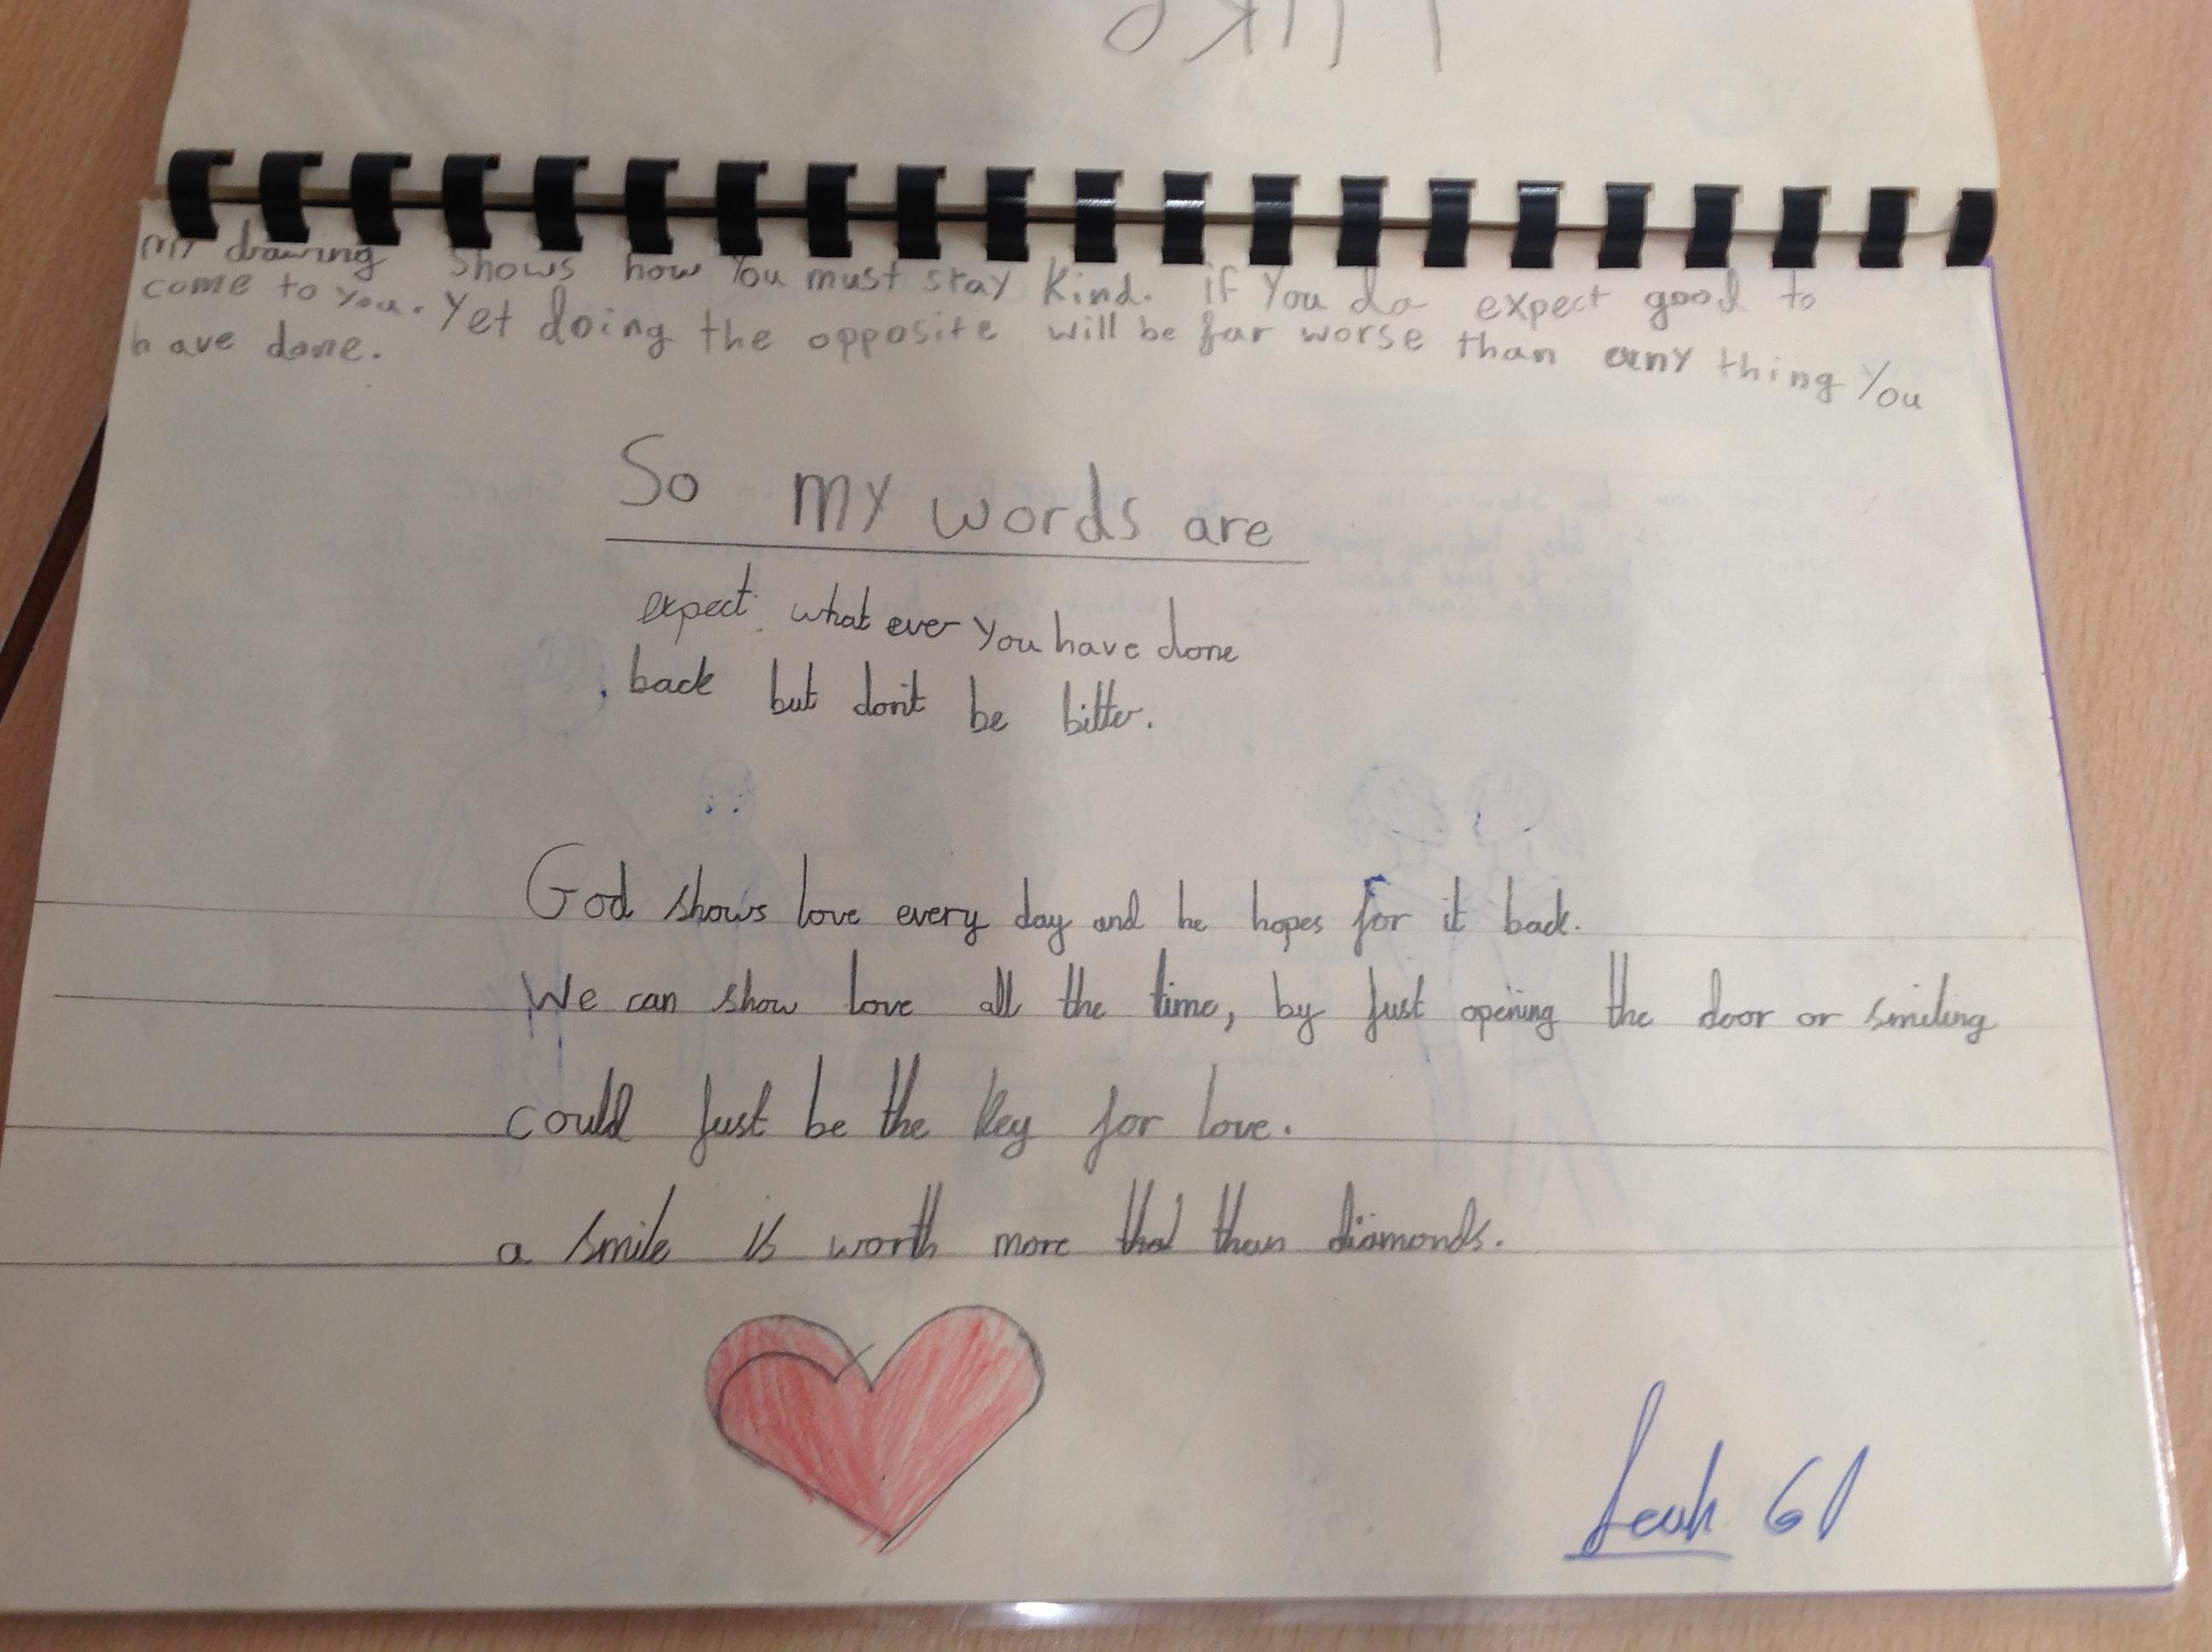 I like
my drawing shows how You must stay Kind. if You do expect good to
come to you. Yet doing the opposite will be far worse than any thing You
have done.
So my words are
expect what ever you have done
back but don't be bitter.
God shows love every day and he hopes for it back.
We can show love all the time, by just opening the door or smiling
could just be the key for love.
a smile is worth more that than diamonds.
Leah 61